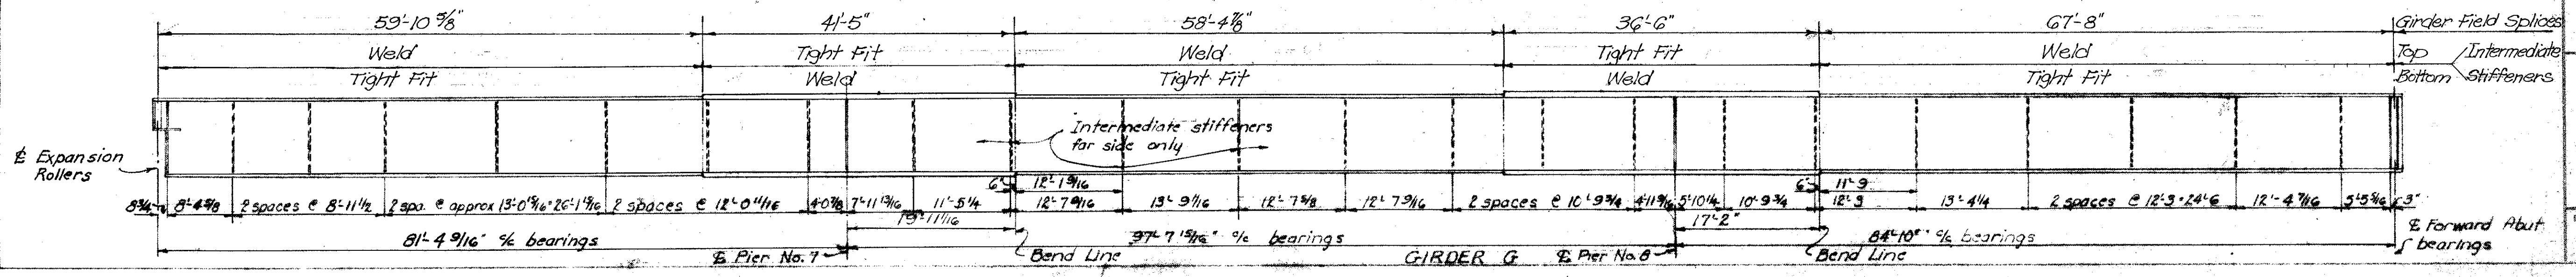 59'-10 5/8" 41'-5" 58'-4 7/8" 36'-6" 67'-8" Girder Field Splices
Weld Tight Fit Weld Tight Fit Weld Top Intermediate
Tight Fit Weld Tight Fit Weld Tight Fit Bottom Stiffeners
Intermediate stiffeners
far side only
℄ Expansion
Rollers
6" 12'-1 9/16 6" 11'-9
8 3/4 8'-4 5/8 2 spaces @ 8'-11 1/2 2 spa. @ approx 13'-0 15/16=26'-1 9/16 2 spaces @ 12'-0 11/16 4'-0 7/8 7'-11 13/16 11'-5 1/4 12'-7 9/16 13'-9/16 12'-7 5/8 12'-7 9/16 2 spaces @ 10'-9 3/4 4'-11 9/16 5'-10 1/4 10'-9 3/4 12'-3 13'-4 1/4 2 spaces @ 12'-3=24'-6 12'-4 7/16 5'-5 5/16 3"
19'-11/16 17'-2"
81'-4 9/16" c/c bearings 97'-7 15/16" c/c bearings 84'-10" c/c bearings
℄ Forward Abut.
bearings
℄ Pier No. 7 Bend Line GIRDER G ℄ Pier No. 8 Bend Line